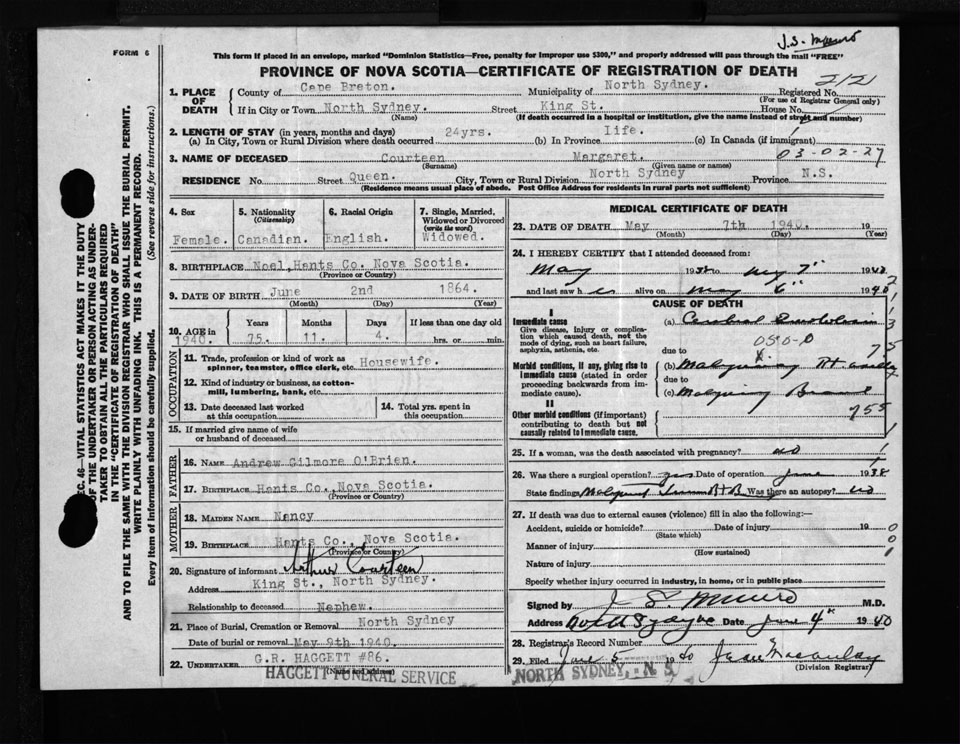 J.S. Munro
FORM 6
This form if placed in an envelope, marked "Dominion Statistics—Free, penalty for improper use $300," and properly addressed will pass through the mail "FREE"
PROVINCE OF NOVA SCOTIA—CERTIFICATE OF REGISTRATION OF DEATH
212
1. PLACE OF DEATH
County of Cape Breton. Municipality of North Sydney. Registered No.
(For use of Registrar General only)
If in City or Town North Sydney. Street King St. House No.
(Name) (If death occurred in a hospital or institution, give the name instead of street and number)
2. LENGTH OF STAY (in years, months and days)
(a) In City, Town or Rural Division where death occurred 24yrs. (b) In Province Life. (c) In Canada (if immigrant)
03-02-27
3. NAME OF DECEASED Courteen Margaret.
(Surname) (Given name or names)
RESIDENCE No. Street Queen. City, Town or Rural Division North Sydney Province N.S.
(Residence means usual place of abode. Post Office Address for residents in rural parts not sufficient)
4. Sex Female.
5. Nationality (Citizenship) Canadian.
6. Racial Origin English.
7. Single, Married, Widowed or Divorced (write the word) Widowed.
8. BIRTHPLACE Noel, Hants Co. Nova Scotia.
(Province or Country)
9. DATE OF BIRTH June 2nd 1864.
(Month) (Day) (Year)
10. AGE in 1940. Years 75. Months 11. Days 4. If less than one day old hrs. or min.
OCCUPATION
11. Trade, profession or kind of work as spinner, teamster, office clerk, etc. Housewife.
12. Kind of industry or business, as cotton-mill, lumbering, bank, etc.
13. Date deceased last worked at this occupation
14. Total yrs. spent in this occupation
15. If married give name of wife or husband of deceased
FATHER
16. NAME Andrew Gilmore O'Brien.
17. BIRTHPLACE Hants Co., Nova Scotia.
(Province or Country)
MOTHER
18. MAIDEN NAME Nancy
19. BIRTHPLACE Hants Co., Nova Scotia.
(Province or Country)
20. Signature of informant Arthur Courteen
Address King St., North Sydney.
Relationship to deceased Nephew.
21. Place of Burial, Cremation or Removal North Sydney
Date of burial or removal May 9th 1940.
22. UNDERTAKER G.R. HAGGETT #86.
(Name and address)
HAGGETT FUNERAL SERVICE
MEDICAL CERTIFICATE OF DEATH
23. DATE OF DEATH May 7th 1940. 19
(Month) (Day) (Year)
24. I HEREBY CERTIFY that I attended deceased from:
May 1938 to May 7" 1940
and last saw her alive on May 6" 1940
CAUSE OF DEATH
I
Immediate cause
Give disease, injury or complication which caused death, not the mode of dying, such as heart failure, asphyxia, asthenia, etc.
(a) Cerebral
due to
Morbid conditions, if any, giving rise to immediate cause (stated in order proceeding backwards from immediate cause)
(b) Rt
due to
(c)
II
Other morbid conditions (if important) contributing to death but not causally related to immediate cause.
25. If a woman, was the death associated with pregnancy? no
26. Was there a surgical operation? yes Date of operation June 1938
State findings Was there an autopsy? no
27. If death was due to external causes (violence) fill in also the following:—
Accident, suicide or homicide? Date of injury 19
(State which)
Manner of injury
(How sustained)
Nature of injury
Specify whether injury occurred in industry, in home, or in public place
Signed by J S. Munro M.D.
Address North Sydney Date June 4" 1940
28. Registrar's Record Number
29. Filed June 5 1940
(Division Registrar)
NORTH SYDNEY, N. S.
SEC. 46—VITAL STATISTICS ACT MAKES IT THE DUTY
OF THE UNDERTAKER OR PERSON ACTING AS UNDER-
TAKER TO OBTAIN ALL THE PARTICULARS REQUIRED
IN THE "CERTIFICATE OF REGISTRATION OF DEATH"
AND TO FILE THE SAME WITH THE DIVISION REGISTRAR WHO SHALL ISSUE THE BURIAL PERMIT.
WRITE PLAINLY WITH UNFADING INK. THIS IS A PERMANENT RECORD.
Every item of information should be carefully supplied. (See reverse side for instructions.)